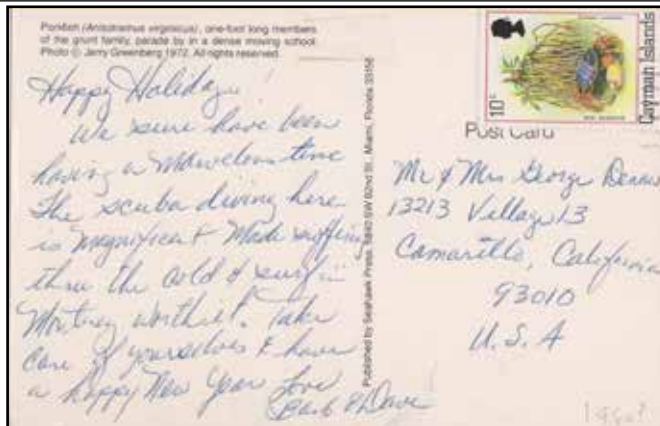 Porkfish (Anisotremus virginicus), one-foot long members
of the grunt family, parade by in a dense moving school.
Photo © Jerry Greenberg 1972. All rights reserved.
Happy Holidays!
We sure have been
having a marvelous time
The scuba diving here
is magnificent Made suffering
thru the cold & surf in
Montrey worth it. Take
Care of yourselves & have
a happy New Year Love
Barb & Dave
Published by Seahawk Press, 6840 SW 92nd St., Miami, Florida 33156
10c
Cayman Islands
Post Card
Mr & Mrs George
13213 Village 13
Camarillo, California
93010
U.S.A